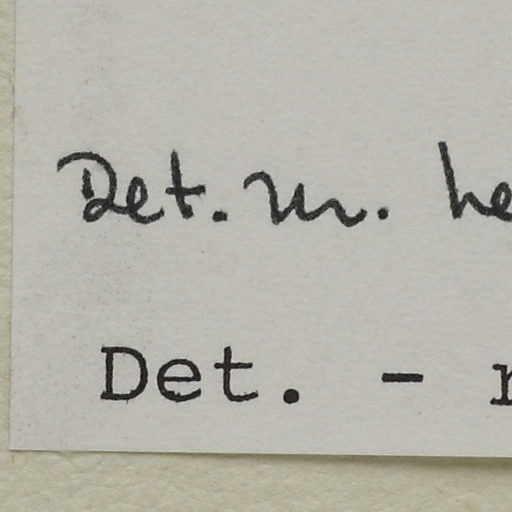 Det. M. he
Det. - r